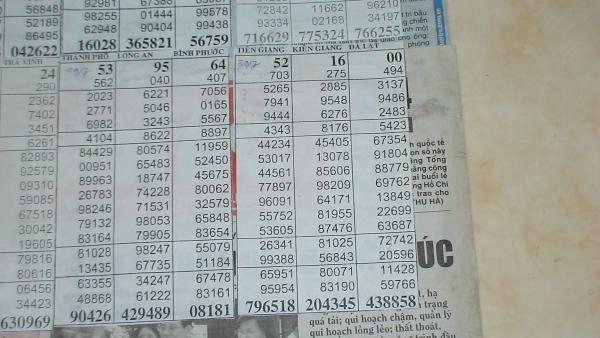 92981 67388
52189 98255 01444 99578 72842 11662 96210
86495 62948 90404 99438 93334 02168 34197
042622 16028 365821 56759 716629 775324 766255
TRÀ VINH THÀNH PHỐ LONG AN BÌNH PHƯỚC TIỀN GIANG KIÊN GIANG ĐÀ LẠT
24 53 95 64 52 16 00
290 562 040 407 703 275 494
2362 2023 6221 7056 5265 2885 3137
7402 2771 5046 0165 7941 9548 9486
3451 6982 3243 5567 9444 6276 2483
6261 4104 8622 8897 4343 8176 5423
82893 84429 80574 11959 44234 45405 67354
92579 00951 65483 52450 53017 13078 91804
09310 89963 18747 45675 44561 85606 88779
59085 26783 74228 80062 77897 98209 69762
67518 98246 71531 32579 96091 64171 13849
30042 79132 98053 65848 55752 81955 22699
19605 83164 79905 83654 53605 87476 63687
79816 81028 98247 55079 26341 81025 72742
80616 13435 67735 51184 99388 56843 20596
06456 63355 34247 67478 65951 80071 11428
34423 48868 61222 83161 95954 83190 59766
630969 90426 429489 08181 796518 204345 438858
trí bầu
chiến
một
phóng
quốc tế
số này
Tổng
công
buổi lễ
Hồ Chí
trao cho
THU HÀ)
ÚC
hạ
trạng
quá tải; qui hoạch chậm, quản lý
qui hoạch lỏng lẻo; thất thoát,